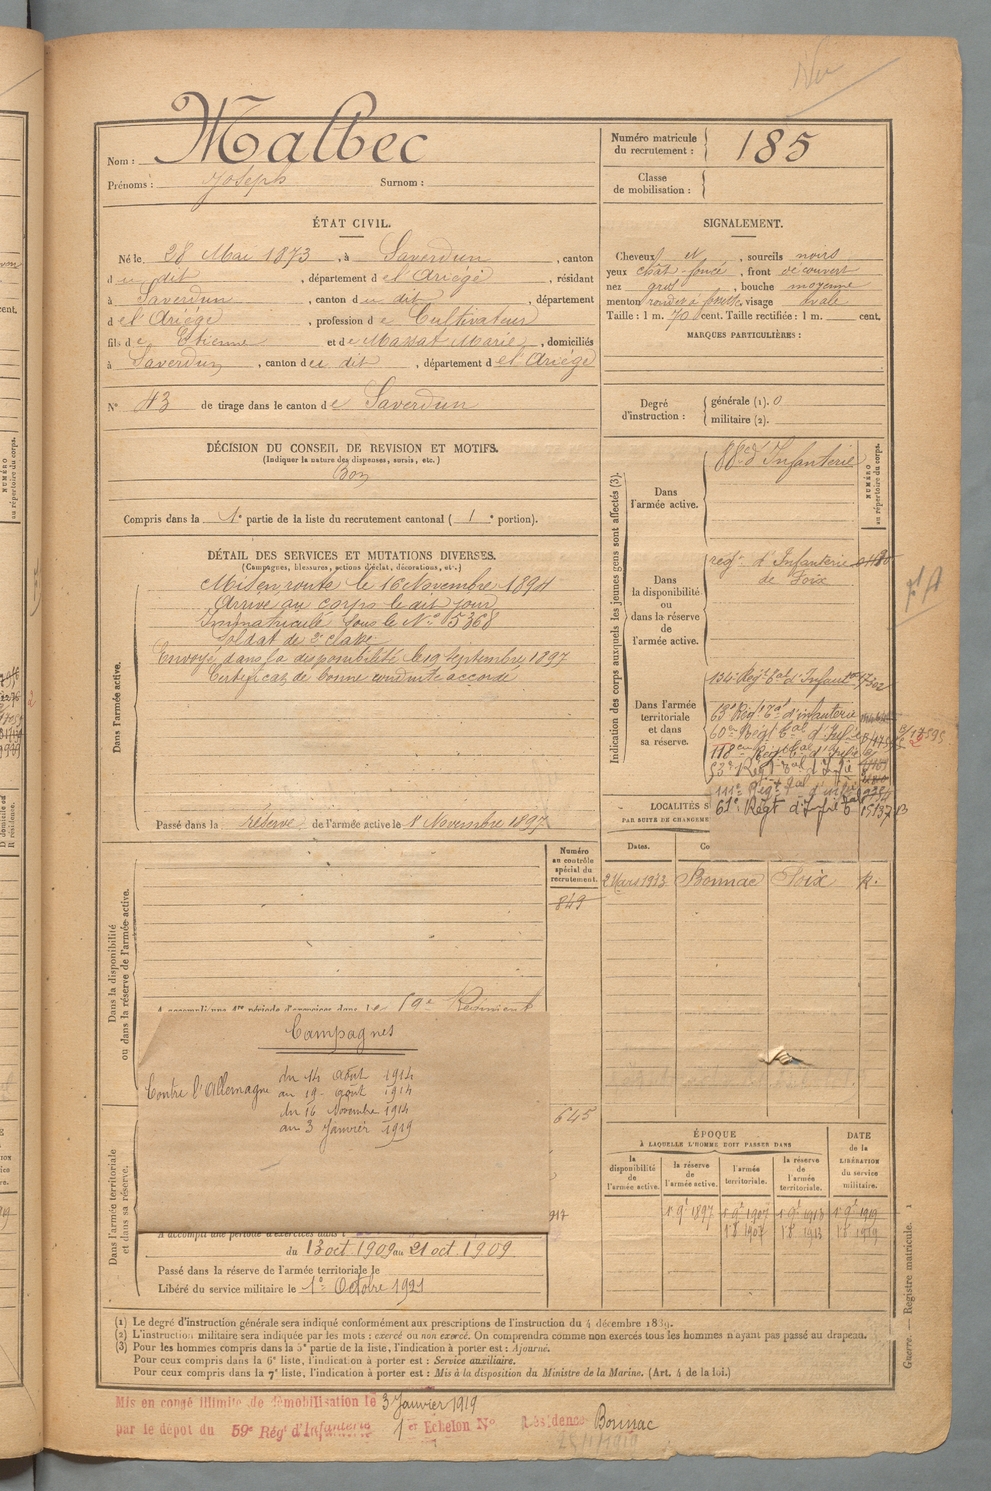 Nom : Malbec
Prénoms : Joseph Surnom :
Numéro matricule
du recrutement : 185
Classe
de mobilisation :
ÉTAT CIVIL.
Né le 28 Mai 1873, à Saverdun, canton
du dit, département de l'Ariège, résidant
à Saverdun, canton du dit, département
de l'Ariège, profession de Cultivateur
fils de Etienne et de Massat Marie, domiciliés
à Saverdun, canton du dit, département de l'Ariège
N° 43 de tirage dans le canton de Saverdun
SIGNALEMENT.
Cheveux et, sourcils noirs
yeux chât-foncé, front découvert
nez gros, bouche moyenne
menton rond et à fossette, visage ovale
Taille : 1 m. 70 cent. Taille rectifiée : 1 m. cent.
MARQUES PARTICULIÈRES :
Degré
d'instruction :
générale (1). 0
militaire (2).
DÉCISION DU CONSEIL DE REVISION ET MOTIFS.
(Indiquer la nature des dispenses, sursis, etc.)
Bon
Compris dans la 1e partie de la liste du recrutement cantonal ( 1e portion).
DÉTAIL DES SERVICES ET MUTATIONS DIVERSES.
(Campagnes, blessures, actions d'éclat, décorations, etc.)
Dans l'armée active.
Mis en route le 16 Novembre 1894
Arrivé au corps le dit jour
Immatriculé sous le N° 5368
Soldat de 2e classe
Envoyé dans la disponibilité le 19 Septembre 1897
Certificat de bonne conduite accordé
Passé dans la réserve de l'armée active le 1er Novembre 1897
Indication des corps auxquels les jeunes gens sont affectés (3).
NUMÉRO
au répertoire du corps.
Dans
l'armée active.
88e d'Infanterie
Dans
la disponibilité
ou
dans la réserve
de
l'armée active.
regt d'Infanterie
de Foix
Dans l'armée
territoriale
et dans
sa réserve.
134e Regt Tal d'Infantie
63e Régt Tal d'infanterie
60me Régt Tal d'Infie
118me Regt Tal d'Infie
53e Regt Tal d'Infie
111e Régt Tal d'infie
61e Régt d'Infie Tal 15137
LOCALITÉS S
PAR SUITE DE CHANGEME
Dates. Co
2 Mars 1913 Bonnac Foix R.
Numéro
au contrôle
spécial du
recrutement.
849
Dans la disponibilité
ou dans la réserve de l'armée active.
A accompli une 1re période d'exercices dans le 59e Régiment
Campagnes
Contre l'Allemagne
du 14 août 1914
au 19 août 1914
du 16 Novembre 1914
au 3 Janvier 1919
645
917
Dans l'armée territoriale
et dans sa réserve.
A accompli une période d'exercices dans l
du 13 oct 1909 au 21 oct 1909
Passé dans la réserve de l'armée territoriale le
Libéré du service militaire le 1er Octobre 1921
ÉPOQUE
À LAQUELLE L'HOMME DOIT PASSER DANS
la
disponibilité
de
l'armée active.
la réserve
de
l'armée active.
l'armée
territoriale.
la réserve
de
l'armée
territoriale.
DATE
de la
LIBÉRATION
du service
militaire.
1 9e 1897 1 9e 1907 1 9e 1913 1 9e 1919
1 8 1907 1 8 1913 1 8 1919
(1) Le degré d'instruction générale sera indiqué conformément aux prescriptions de l'instruction du 4 décembre 1889.
(2) L'instruction militaire sera indiquée par les mots : exercé ou non exercé. On comprendra comme non exercés tous les hommes n'ayant pas passé au drapeau.
(3) Pour les hommes compris dans la 5e partie de la liste, l'indication à porter est : Ajourné.
Pour ceux compris dans la 6e liste, l'indication à porter est : Service auxiliaire.
Pour ceux compris dans la 7e liste, l'indication à porter est : Mis à la disposition du Ministre de la Marine. (Art. 4 de la loi.)
Guerre. — Registre matricule. 1
Mis en congé illimité de démobilisation le 3 Janvier 1919
par le dépot du 59e Régt d'Infanterie 1er Echelon N° Résidence Bonnac